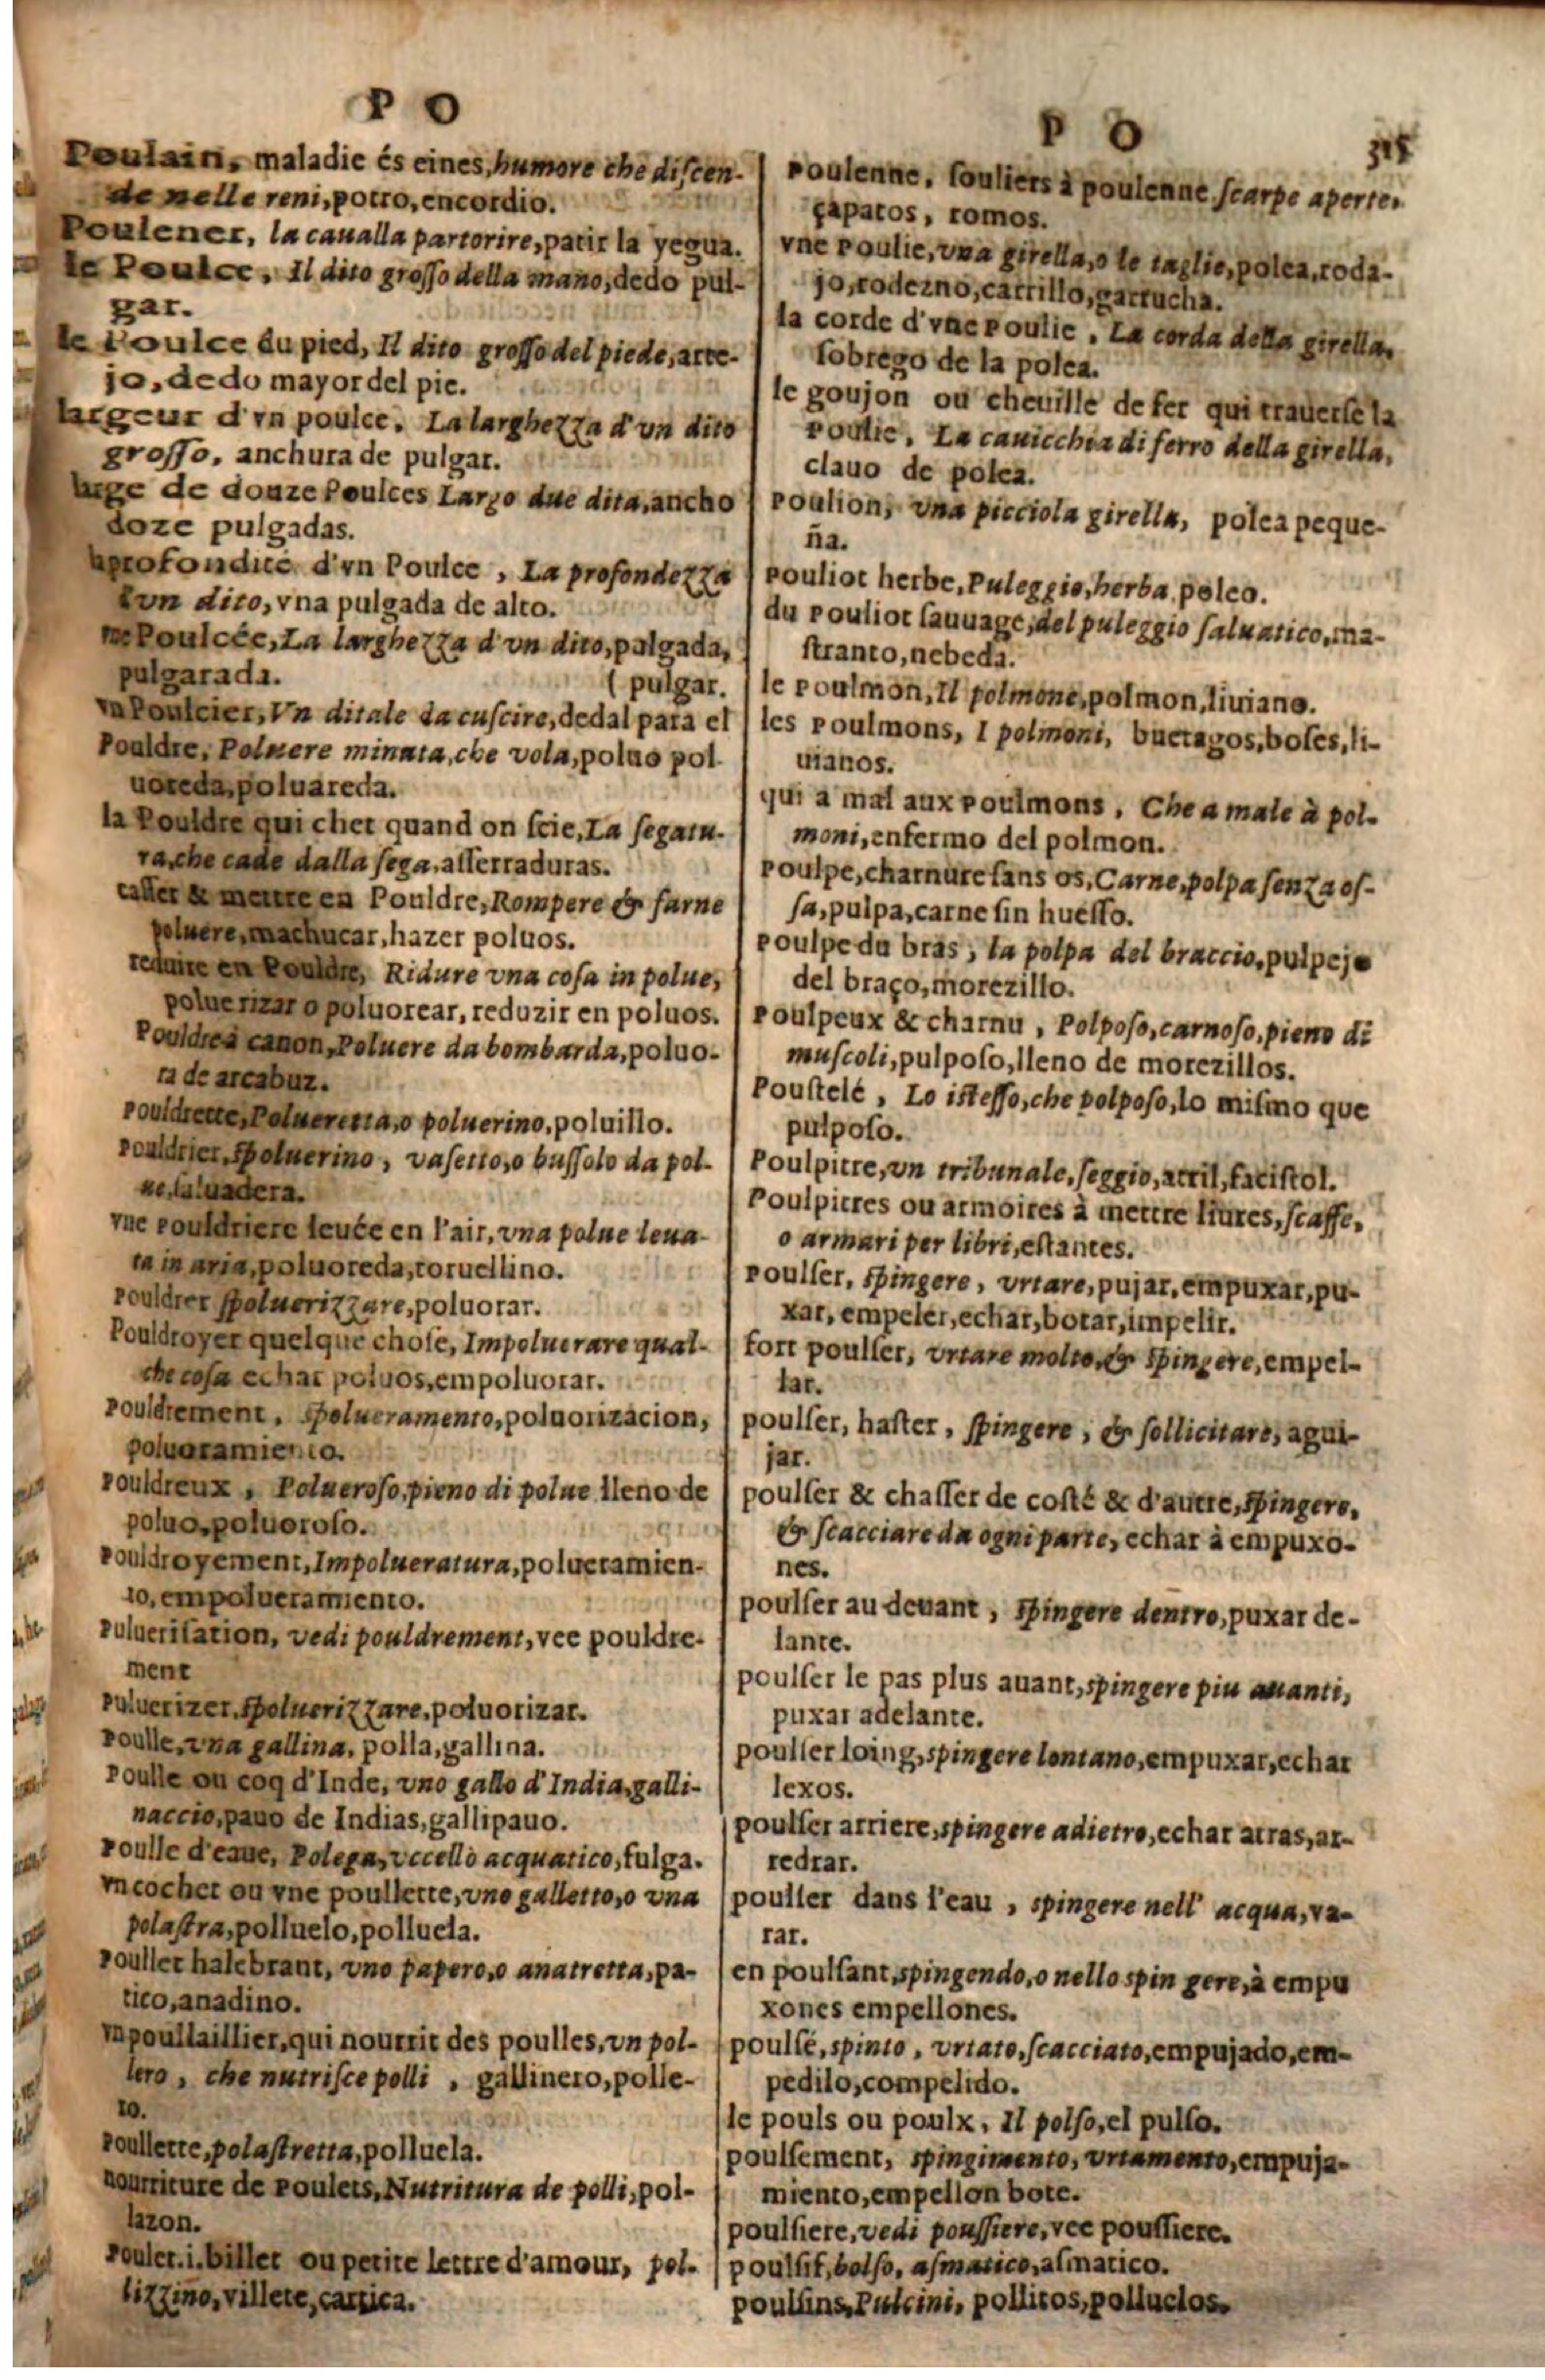 P O
Poulain, maladie és eines, humore che discen-
de nelle reni, potro, encordio.
Poulener, la caualla partorire, patir la yegua.
le Poulce, Il dito grosso della mano, dedo pul-
gar.
le Poulce du pied, Il dito grosso del piede, arte-
jo, dedo mayor del pie.
largeur d'vn poulce, La larghezza d'vn dito
grosso, anchura de pulgar.
large de douze Poulces Largo due dita, ancho
doze pulgadas.
la profondité d'vn Poulce, La profondezza
d'vn dito, vna pulgada de alto.
vne Poulcée, La larghezza d'vn dito, palgada,
pulgarada. ( pulgar.
vn Poulcier, Vn ditale da cuscire, dedal para el
Pouldre, Poluere minuta, che vola, poluo pol
uoreda, poluareda.
la Pouldre qui chet quand on scie, La segatu-
ra, che cade dalla sega, asserraduras.
casser & mettre en Pouldre, Rompere & farne
poluere, machucar, hazer poluos.
reduire en Pouldre, Ridure vna cosa in polue,
poluerizar o poluorear, reduzir en poluos.
Pouldre à canon, Poluere da bombarda, poluo-
ra de arcabuz.
Pouldrette, Polueretta, o poluerino, poluillo.
Pouldrier, spoluerino, vasetto, o bussolo da pol-
ue, saluadera.
vne Pouldriere leuée en l'air, vna polue leua-
ta in aria, poluoreda, toruellino.
Pouldrer spoluerizzare, poluorar.
Pouldroyer quelque chose, Impoluerare qual-
che cosa echar poluos, empoluorar.
Pouldrement, spolueramento, poluorizacion,
poluoramiento.
Pouldreux, Polueroso, pieno di polue lleno de
poluo, poluoroso.
Pouldroyement, Impolueratura, polueramien-
to, empolueramiento.
Puluerisation, vedi pouldrement, vee pouldre-
ment
Puluerizer, spoluerizzare, poluorizar.
Poulle, vna gallina, polla, gallina.
Poulle ou coq d'Inde, vno gallo d'India, galli-
naccio, pauo de Indias, gallipauo.
Poulle d'eaue, Polega, vccello acquatico, fulga.
vn cochet ou vne poullette, vno galletto, o vna
polastra, polluelo, polluela.
Poullet halebrant, vno papero, o anatretta, pa-
tico, anadino.
vn poullaillier, qui nourrit des poulles, vn pol-
lero, che nutrisce polli, gallinero, polle-
ro.
Poullette, polastretta, polluela.
nourriture de Poulets, Nutritura de polli, pol-
lazon.
Poulet. i. billet ou petite lettre d'amour, pol-
lizzino, villete, cartica.
P O 315
Poulenne, souliers à poulenne scarpe aperte,
çapatos, romos.
vne Poulie, vna girella, o le taglie, polea, roda-
jo, rodezno, carrillo, garrucha.
la corde d'vne Poulie, La corda della girella,
sobrego de la polea.
le goujon ou cheuille de fer qui trauerse la
Poulie, La cauicchia di ferro della girella,
clauo de polea.
Poulion, vna picciola girella, polea peque-
ña.
Pouliot herbe, Puleggio, herba poleo.
du Pouliot sauuage, del puleggio saluatico, ma-
stranto, nebeda.
le Poulmon, Il polmone, polmon, liuiano.
les Poulmons, I polmoni, buetagos, bofes, li-
uianos.
qui a mal aux Poulmons, Che a male à pol-
moni, enfermo del polmon.
Poulpe, charnure sans os, Carne, polpa senza os-
sa, pulpa, carne sin huesso.
Poulpe du bras, la polpa del braccio, pulpejo
del braço, morezillo.
Poulpeux & charnu, Polposo, carnoso, pieno di
muscoli, pulposo, lleno de morezillos.
Poustelé, Lo istesso, che polposo, lo mismo que
pulposo.
Poulpitre, vn tribunale, seggio, atril, facistol.
Poulpitres ou armoires à mettre liures, scaffe,
o armari per libri, estantes.
Poulser, spingere, vrtare, pujar, empuxar, pu-
xar, empeler, echar, botar, impelir.
fort poulser, vrtare molto, & spingere, empel-
lar.
poulser, haster, spingere, & sollicitare, agui-
jar.
poulser & chasser de costé & d'autre, spingere,
& scacciare da ogni parte, echar à empuxo-
nes.
poulser au deuant, spingere dentro, puxar de-
lante.
poulser le pas plus auant, spingere piu auanti,
puxar adelante.
poulser loing, spingere lontano, empuxar, echar
lexos.
poulser arriere, spingere adietro, echar atras, ar-
redrar.
poulser dans l'eau, spingere nell' acqua, va-
rar.
en poulsant, spingendo, o nello spin gere, à empu
xones empellones.
poulsé, spinto, vrtato, scacciato, empujado, em-
pedilo, compelido.
le pouls ou poulx, Il polso, el pulso.
poulsement, spingimento, vrtamento, empuja-
miento, empellon bote.
poulsiere, vedi poussiere, vee poussiere.
poulsif, bolso, asmatico, asmatico.
poulsins, Pulcini, pollitos, polluelos.